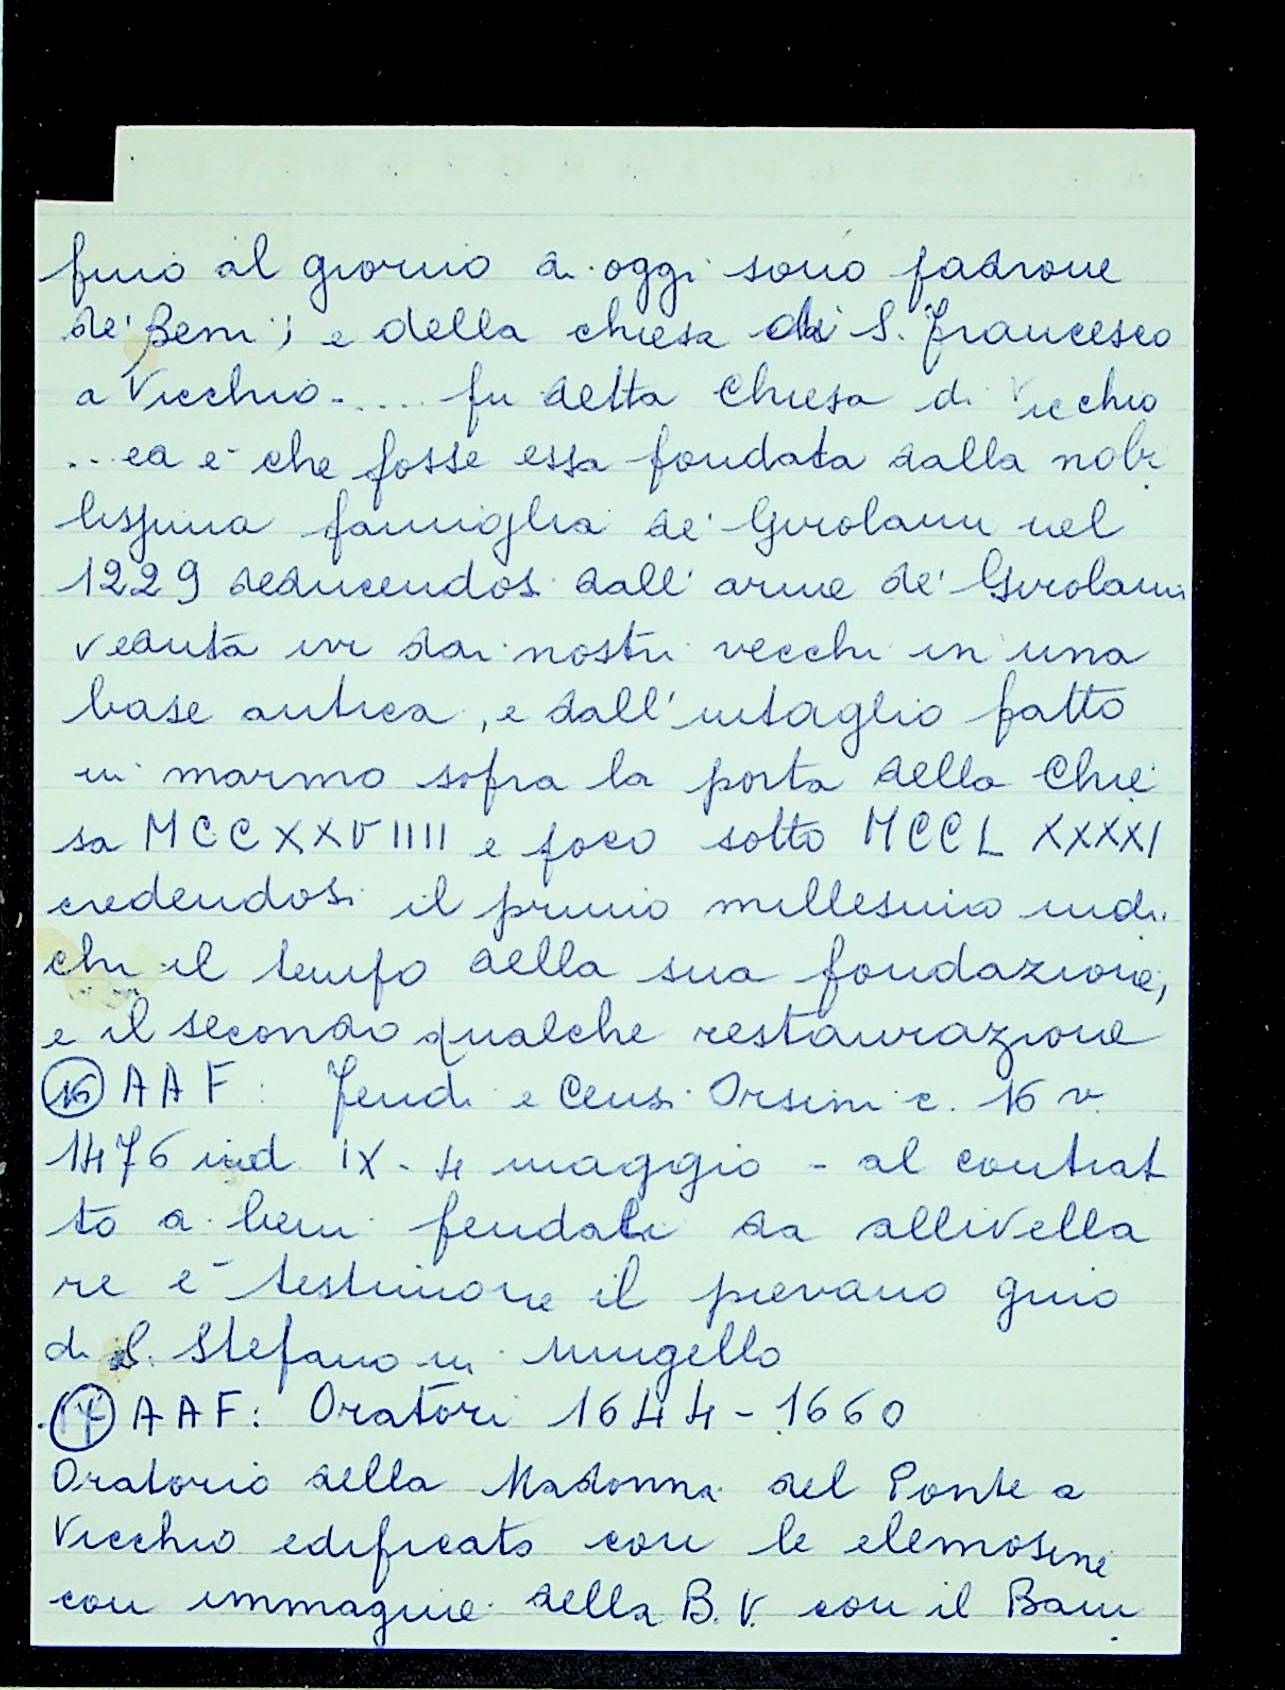 fino al giorno di oggi sono padrone
de' Beni; e della chiesa di S. Francesco
a Vicchio-.... fu detta Chiesa di Vicchio
... ed è che fosse essa fondata dalla nobi
lissima famiglia de' Girolami nel
1229 deducendosi dall' arme de' Girolami
veduta ivi dai nostri vecchi in una
base antica, e dall' intaglio fatto
in marmo sopra la porta della Chie
sa MCCXXVIIII e poco sotto MCCLXXXXI
credendosi il primo millesimo indi
chi il tempo della sua fondazione,
e il secondo qualche restaurazione
16 AAF: Feudi e Censi Orsini c. 16 v.
1476 ind IX - 4 maggio - al contrat
to a beni feudali da allivella
re è testimone il pievano
di S. Stefano in Mugello
17 AAF: Oratori 1644-1660
Oratorio della Madonna del Ponte a
Vicchio edificato con le elemosine
con immagine della B. V. con il Bam